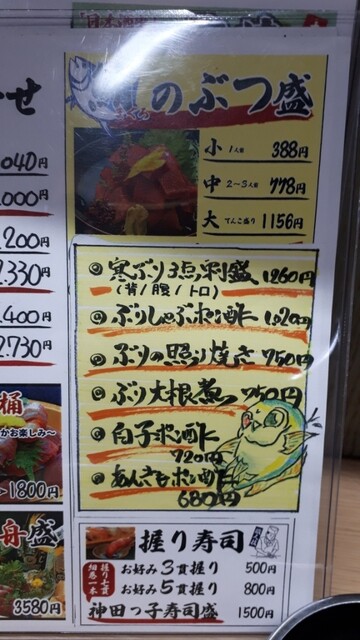 せ
040円
000円
200円
2.330円
400円
2.730円
桶
かお楽しみ〜
1800円
舟盛
3580円
のぶつ盛
小 1人前 388円
中 2〜3人前 778円
大 てんこ盛り 1156円
◎寒ぶり3点刺盛 1260円
(背/腹/トロ)
◎ぶりしゃぶポン酢 1020円
◎ぶりの照り焼き 750円
◎ぶり大根煮 750円
◎白子ポン酢 720円
◎あん肝ポン酢 680円
握り寿司
握り七貫
細巻一本
お好み3貫握り 500円
お好み5貫握り 800円
神田っ子寿司盛 1500円